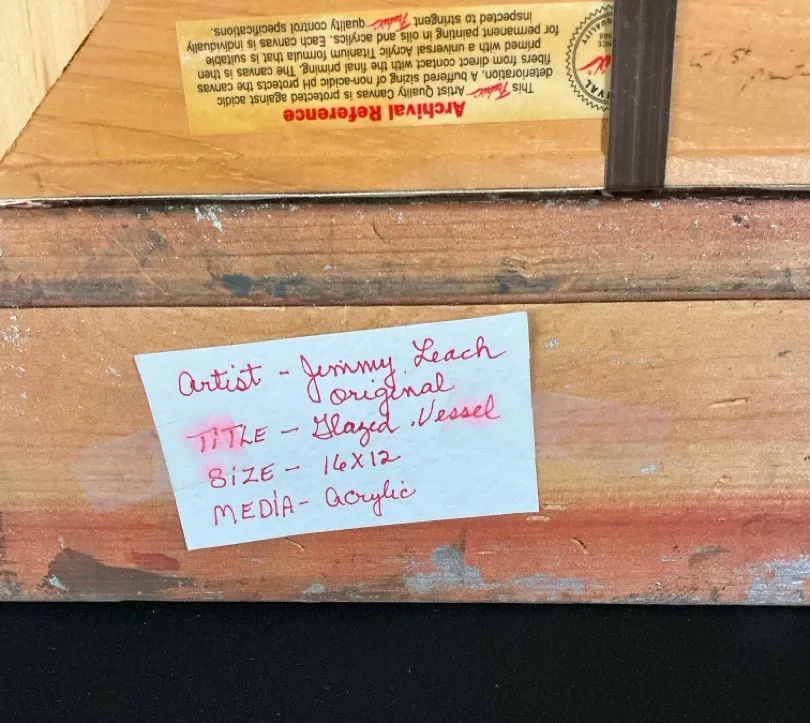 Archival Reference
This Fredrix Artist Quality Canvas is protected against acidic
deterioration. A buffered sizing of non-acidic pH protects the canvas
fibers from direct contact with the final priming. The canvas is then
primed with a universal Acrylic Titanium formula that is suitable
for permanent painting in oils and acrylics. Each canvas is individually
inspected to stringent Fredrix quality control specifications.
Artist - Jimmy Leach
original
TITLE - Glazed Vessel
SIZE - 16X12
MEDIA - Acrylic